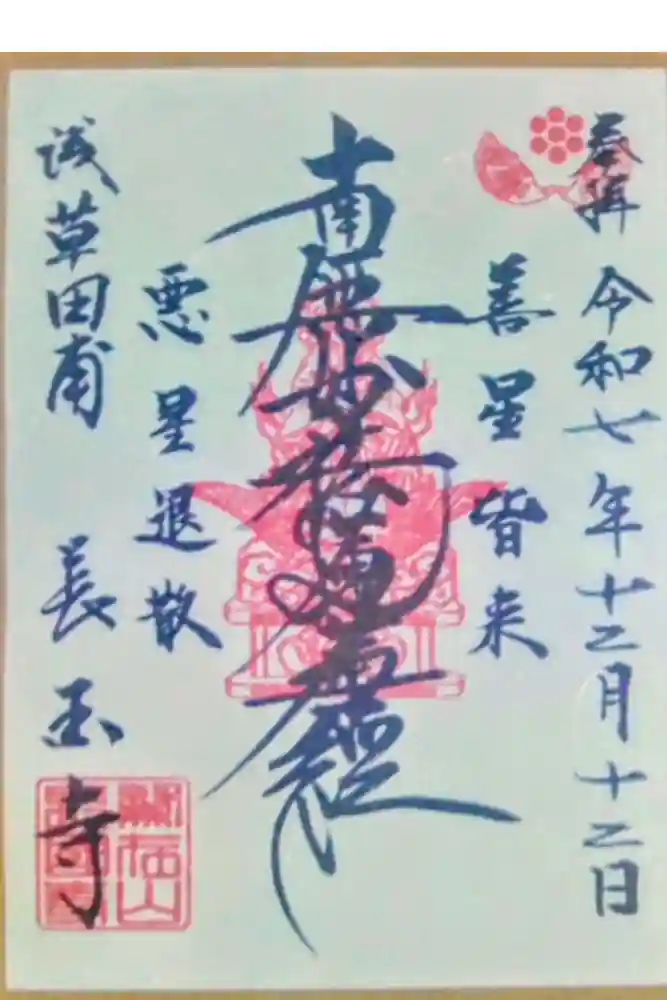 奉拝 令和七年十二月十二日
善星皆来
南無妙法蓮華経
悪星退散
浅草田甫 長玉寺